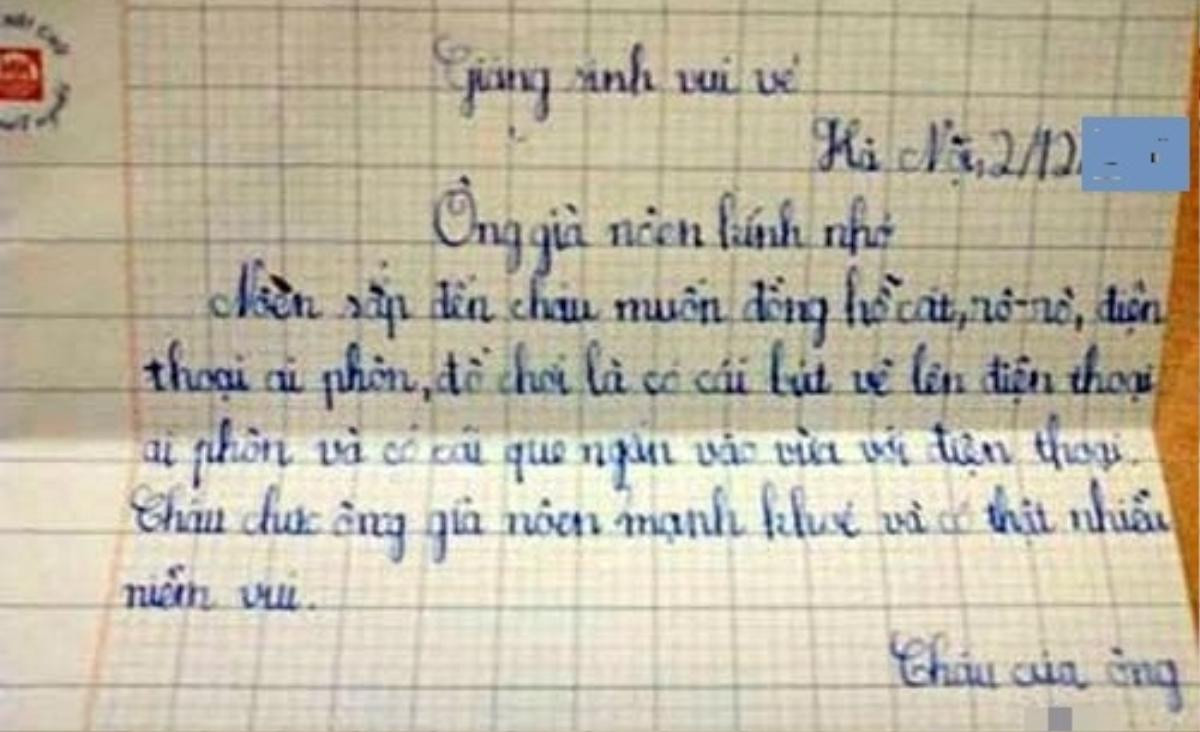 Giáng sinh vui vẻ
Hà Nội, 2/12/
Ông già nôen kính nhớ
Nôên sắp đến cháu muốn đồng hồ cát, rô-rô, điện
thoại ai phôn, đồ chơi là có cái bút vẽ lên điện thoại
ai phôn và có cái que ngắn vào vừa với điện thoại.
Cháu chúc ông già nôen mạnh khoẻ và có thật nhiều
niềm vui.
Cháu của ông